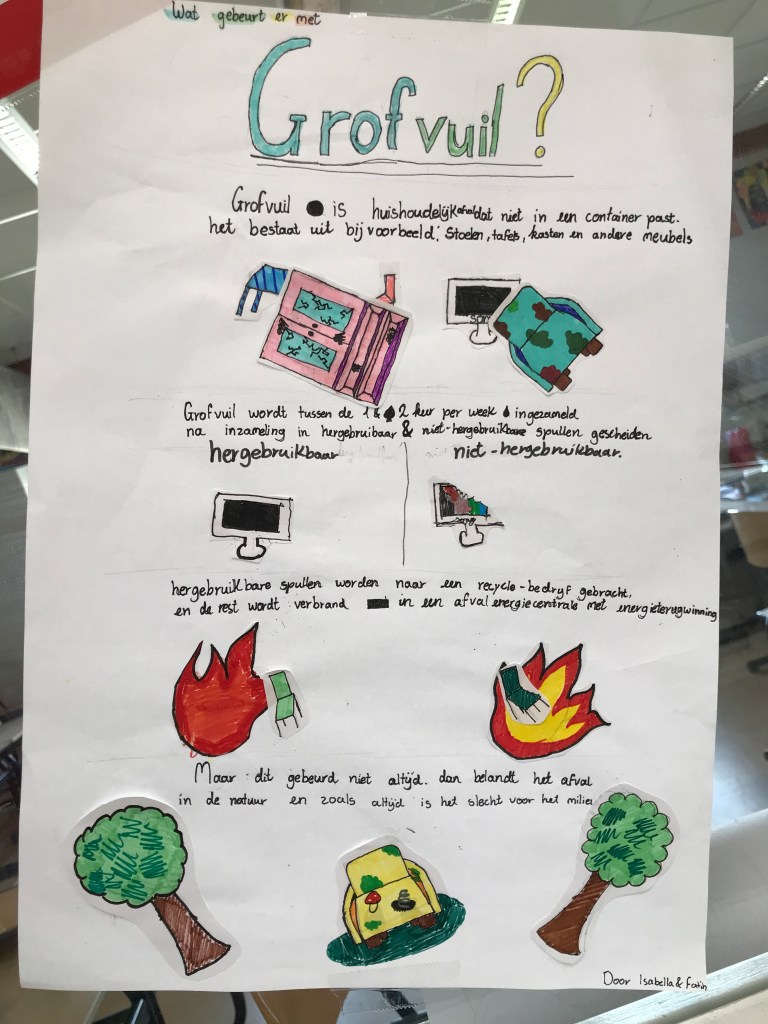 Wat gebeurt er met
Grof vuil?
Grofvuil is huishoudelijk afval dat niet in een container past.
het bestaat uit bij voorbeeld: Stoelen, tafels, kasten en andere meubels
Grofvuil wordt tussen de 1 & 2 keer per week ingezameld
na inzameling in hergebruibaar & niet-hergebruikbare spullen gescheiden
hergebruikbaar niet-hergebruikbaar.
hergebruikbare spullen worden naar een recycle-bedryf gebracht,
en de rest wordt verbrand in een afvalenergiecentrale met energieterugwinning
Maar dit gebeurd niet altijd. dan belandt het afval
in de natuur en zoals altijd is het slecht voor het milieu
Door Isabella & Fatin